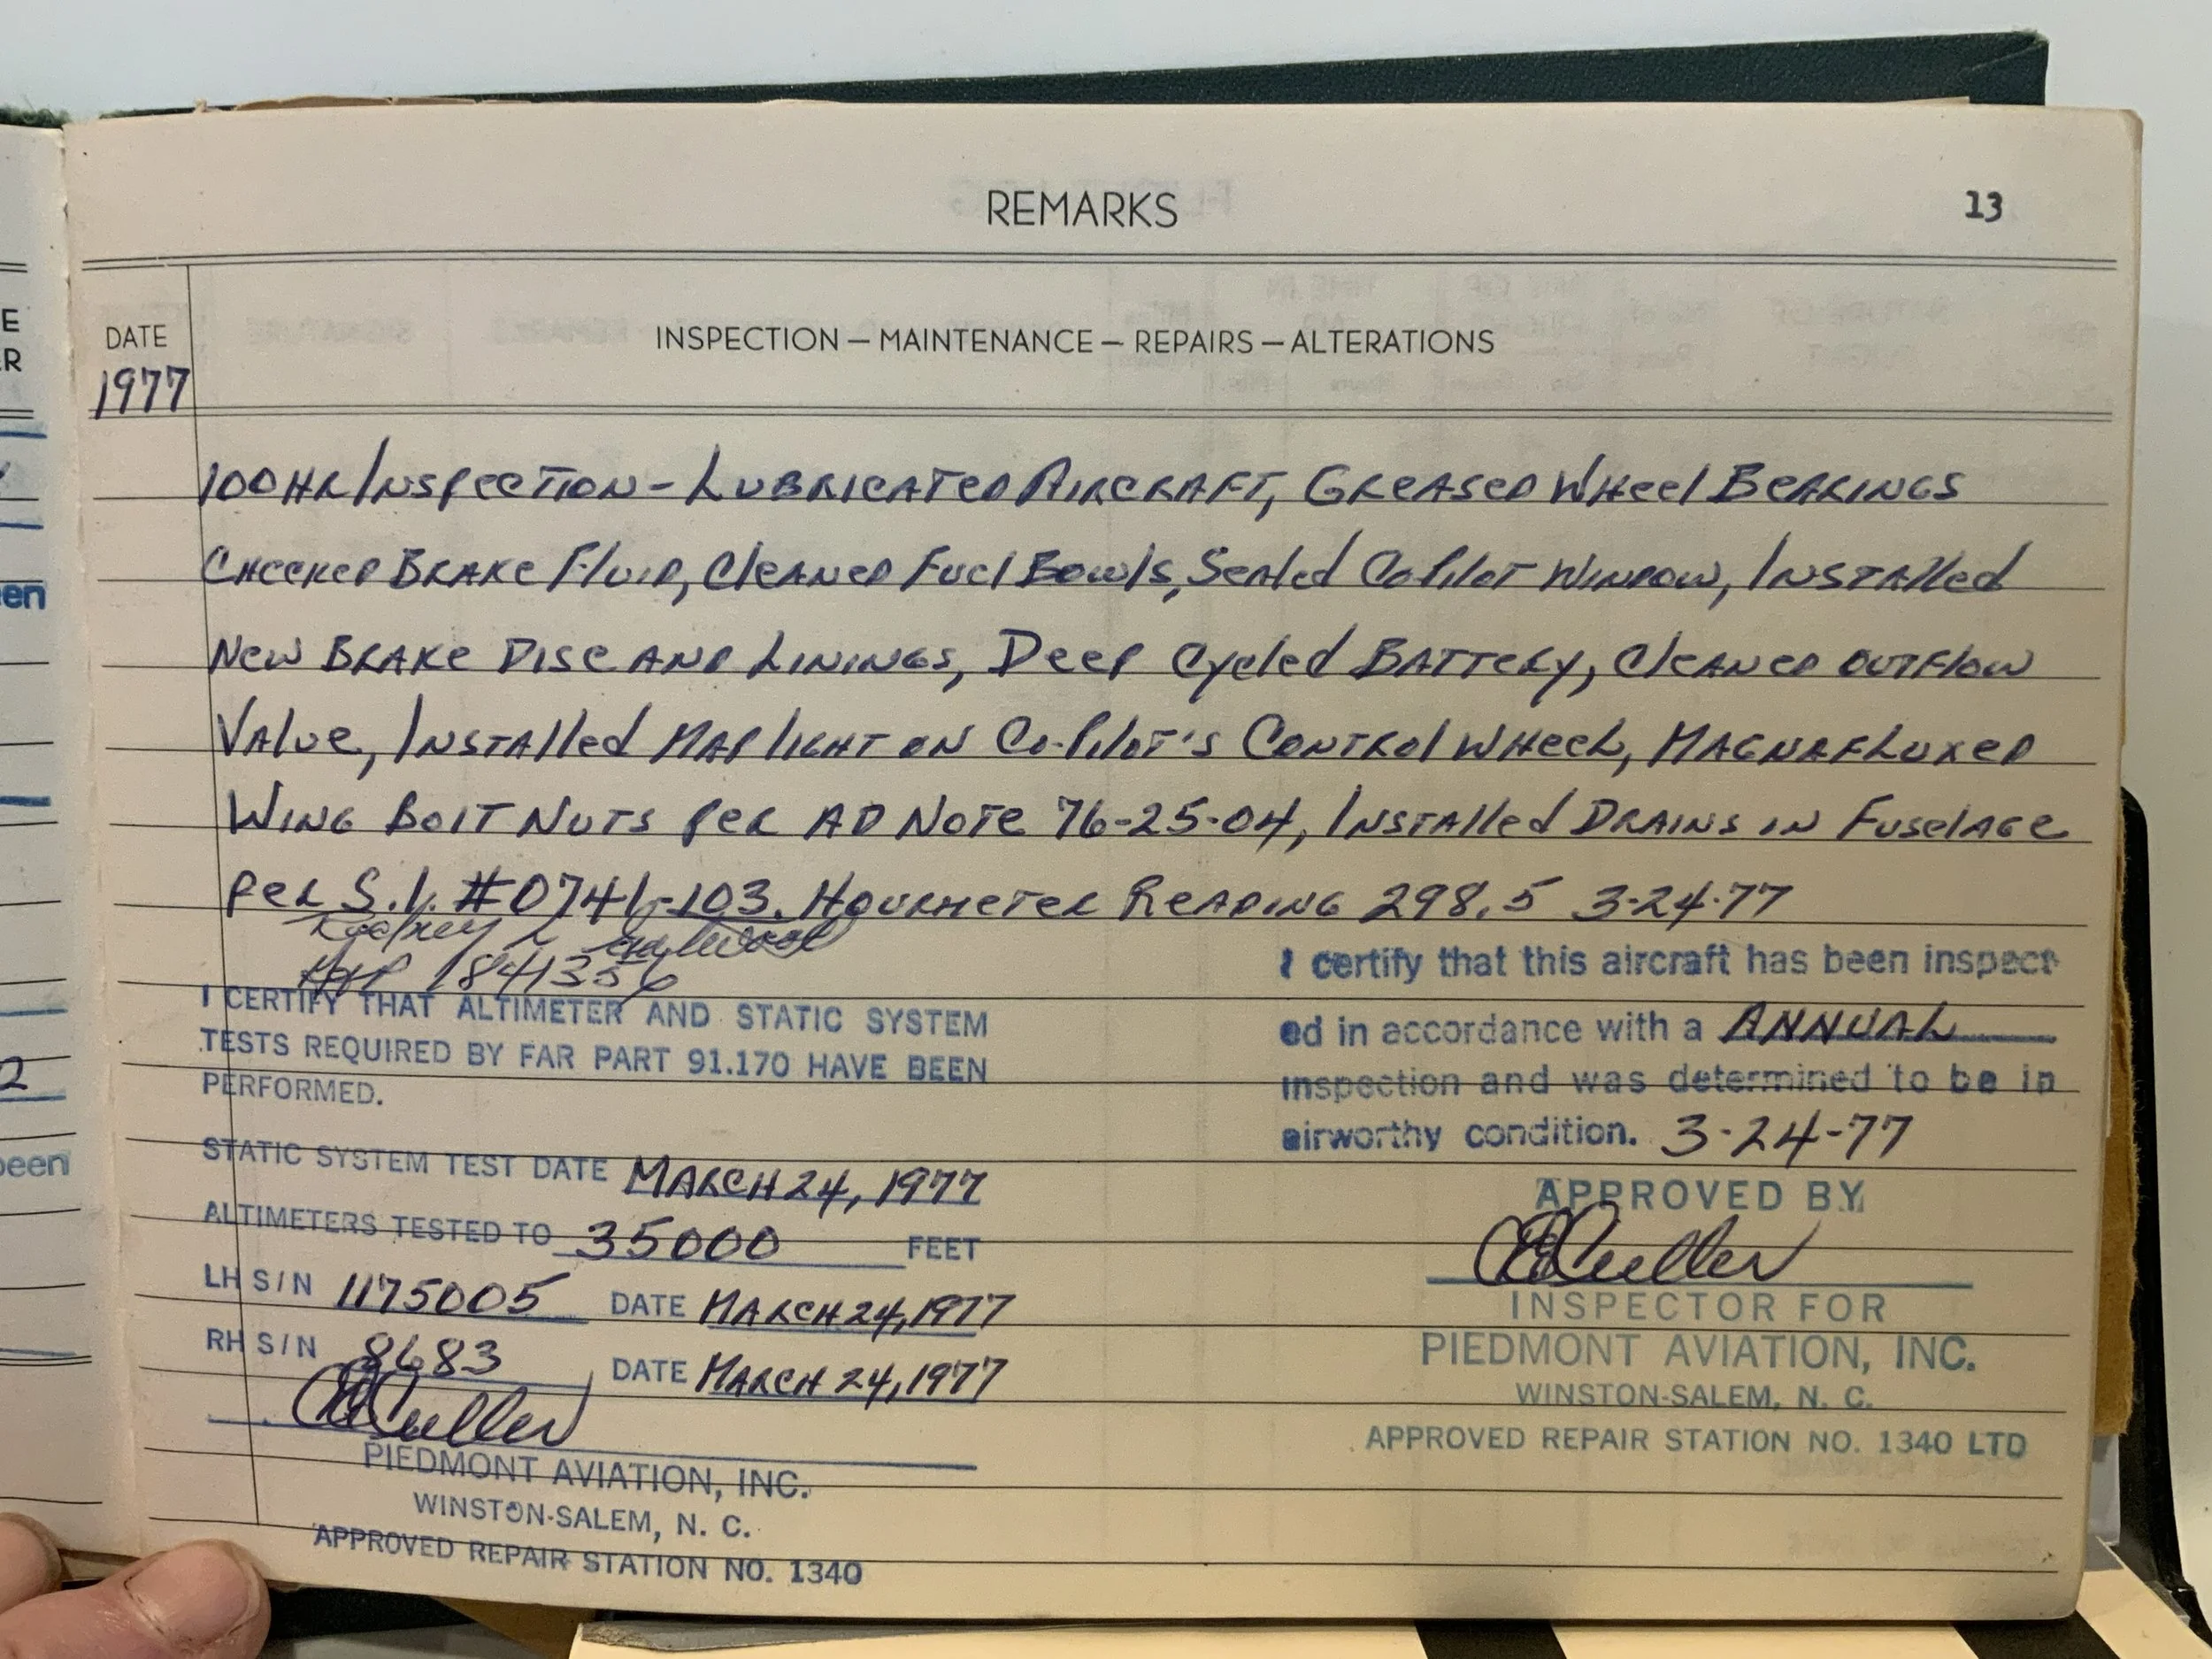 REMARKS
13
DATE
1977
INSPECTION — MAINTENANCE — REPAIRS — ALTERATIONS
100HR INSPECTION - LUBRICATED AIRCRAFT, GREASED WHEEL BEARINGS
CHECKED BRAKE FLUID, CLEANED FUEL BOWLS, SEALED COPILOT WINDOW, INSTALLED
NEW BRAKE DISC AND LININGS, DEEP CYCLED BATTERY, CLEANED OUTFLOW
VALUE, INSTALLED MAP LIGHT ON CO-PILOT'S CONTROL WHEEL, MAGNAFLUXED
WING BOLT NUTS PER AD NOTE 76-25-04, INSTALLED DRAINS IN FUSELAGE
PER S.I. #0741-103. HOURMETER READING 298.5 3-24-77
Rodney L
1841356
I CERTIFY THAT ALTIMETER AND STATIC SYSTEM
TESTS REQUIRED BY FAR PART 91.170 HAVE BEEN
PERFORMED.
STATIC SYSTEM TEST DATE MARCH 24, 1977
ALTIMETERS TESTED TO 35000 FEET
LH S/N 1175005 DATE MARCH 24, 1977
RH S/N 8683 DATE MARCH 24, 1977
Culler
PIEDMONT AVIATION, INC.
WINSTON-SALEM, N. C.
APPROVED REPAIR STATION NO. 1340
I certify that this aircraft has been inspect
ed in accordance with a ANNUAL
inspection and was determined to be in
airworthy condition. 3-24-77
APPROVED BY
Culler
INSPECTOR FOR
PIEDMONT AVIATION, INC.
WINSTON-SALEM, N. C.
APPROVED REPAIR STATION NO. 1340 LTD
E
R
en
2
been